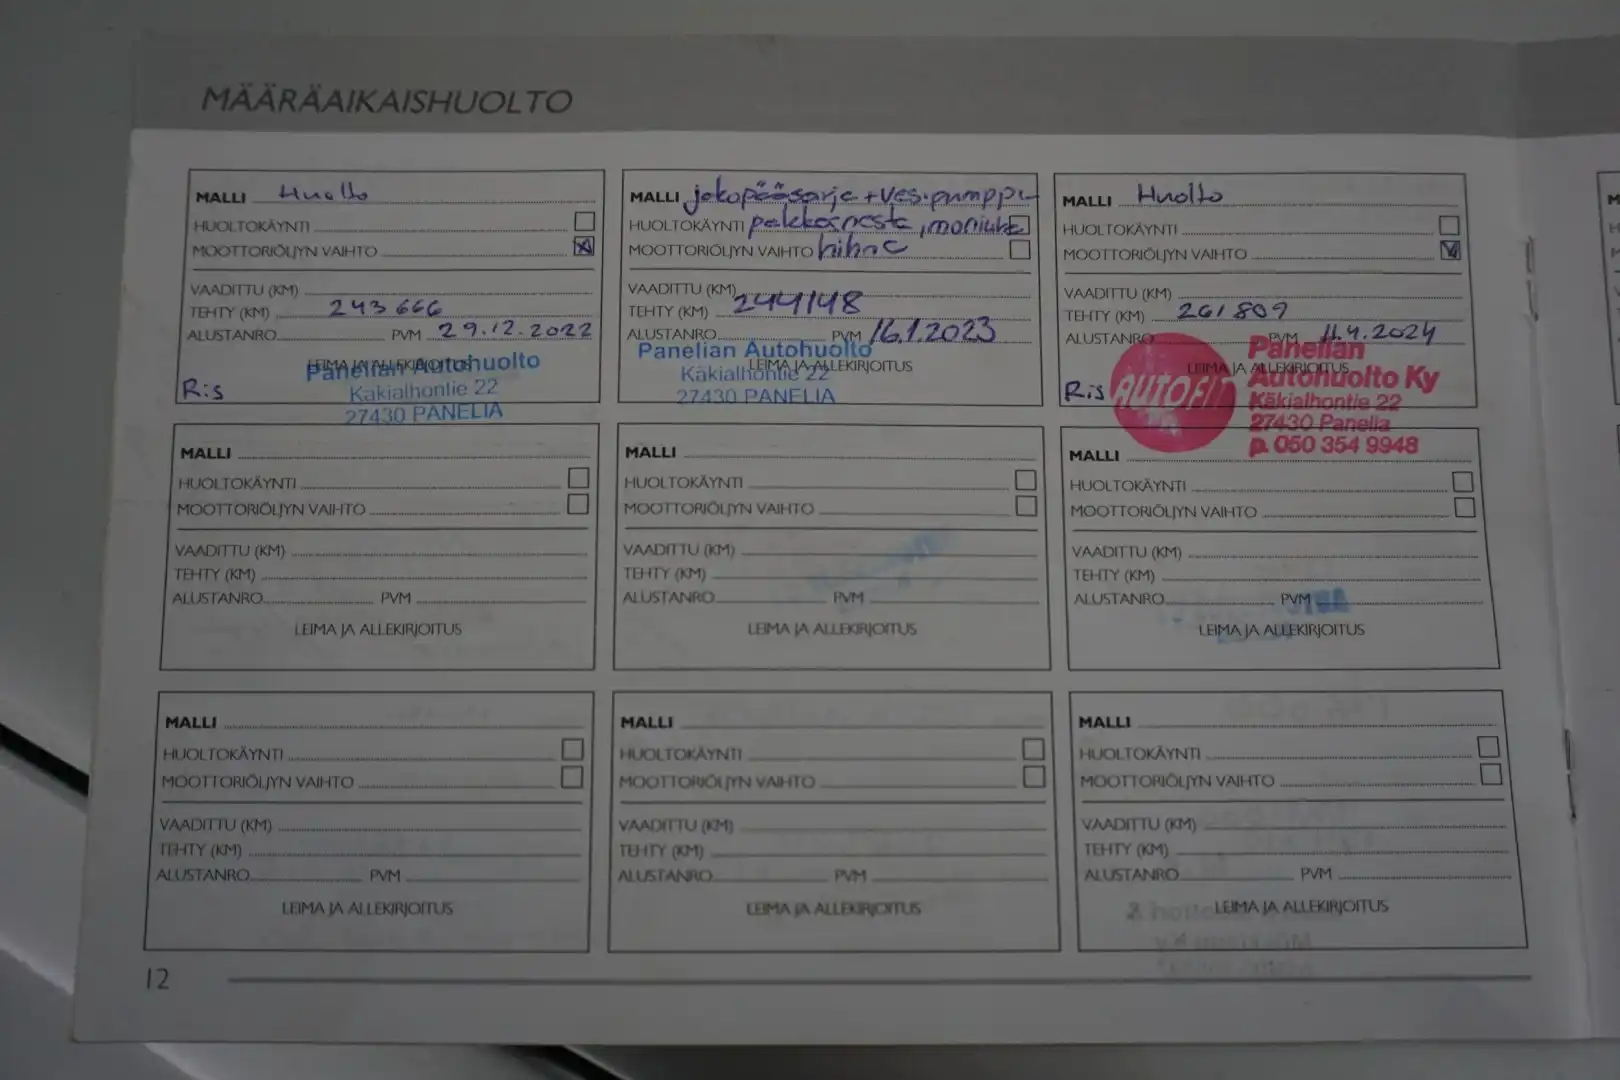 MÄÄRÄAIKAISHUOLTO
MALLI Huolto
HUOLTOKÄYNTI
MOOTTORIÖLJYN VAIHTO
VAADITTU (KM)
TEHTY (KM) 243 666
ALUSTANRO PVM 29.12.2022
LEIMA JA ALLEKIRJOITUS
Panelian Autohuolto
Käkialhontie 22
27430 PANELIA
R:s
MALLI jakopääsarja + Vesipumppu
HUOLTOKÄYNTI pakkasnesta, moniura
MOOTTORIÖLJYN VAIHTO hihna
VAADITTU (KM)
TEHTY (KM) 244148
ALUSTANRO PVM 16.1.2023
Panelian Autohuolto
LEIMA JA ALLEKIRJOITUS
Käkialhontie 22
27430 PANELIA
MALLI Huolto
HUOLTOKÄYNTI
MOOTTORIÖLJYN VAIHTO
VAADITTU (KM)
TEHTY (KM) 261809
ALUSTANRO PVM 11.4.2024
LEIMA JA ALLEKIRJOITUS
R:s
AUTOFIT
Panelian
Autohuolto Ky
Käkialhontie 22
27430 Panelia
p. 050 354 9948
MALLI
HUOLTOKÄYNTI
MOOTTORIÖLJYN VAIHTO
VAADITTU (KM)
TEHTY (KM)
ALUSTANRO PVM
LEIMA JA ALLEKIRJOITUS
MALLI
HUOLTOKÄYNTI
MOOTTORIÖLJYN VAIHTO
VAADITTU (KM)
TEHTY (KM)
ALUSTANRO PVM
LEIMA JA ALLEKIRJOITUS
MALLI
HUOLTOKÄYNTI
MOOTTORIÖLJYN VAIHTO
VAADITTU (KM)
TEHTY (KM)
ALUSTANRO PVM
LEIMA JA ALLEKIRJOITUS
MALLI
HUOLTOKÄYNTI
MOOTTORIÖLJYN VAIHTO
VAADITTU (KM)
TEHTY (KM)
ALUSTANRO PVM
LEIMA JA ALLEKIRJOITUS
MALLI
HUOLTOKÄYNTI
MOOTTORIÖLJYN VAIHTO
VAADITTU (KM)
TEHTY (KM)
ALUSTANRO PVM
LEIMA JA ALLEKIRJOITUS
MALLI
HUOLTOKÄYNTI
MOOTTORIÖLJYN VAIHTO
VAADITTU (KM)
TEHTY (KM)
ALUSTANRO PVM
LEIMA JA ALLEKIRJOITUS
12